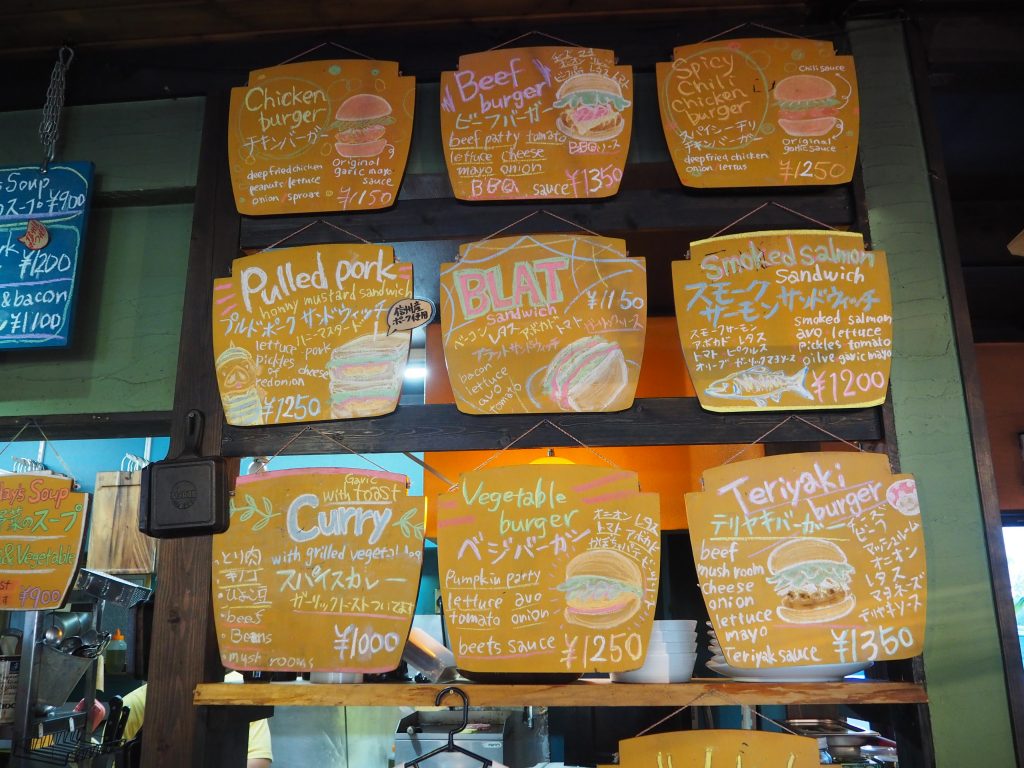 Chicken
burger
チキンバーガー
deepfried chicken
peanuts lettuce
onion/sproute
Original
garic mayo
sauce
¥1150
Beef
burger
ビーフバーガー
beef patty tomato
lettuce cheese
mayo onion
BBQ sauce
BBQソース
¥1350
Spicy
Chili
Chicken
burger
スパイシーチリ
チキンバーガー
deepfried chicken
onion/lettus
Chili sauce
Original
garlic sauce
¥1250
Soup
スープ ¥900
¥1200
&bacon
¥1100
Pulled pork
honny mustard sandwich
プルドポークサンドウィッチ
ハニーマスタード
信州産
ポーク使用
lettuce pork
pickles cheese
redonion
¥1250
BLAT
sandwich
¥1150
ベーコン レタス アボカド トマト
ブラットサンドウィッチ
bacon
lettuce
avo
tomato
Smoked salmon
Sandwich
スモーク
サーモン サンドウィッチ
スモークサーモン
アボカド レタス
トマト ピクルス
オリーブ ガーリックマヨソース
smoked salmon
avo lettuce
pickles tomato
oilve garic mayo
¥1200
Day's Soup
野菜のスープ
&Vegetable
¥900
Garic
with toast
Curry
with grilled vegetables
スパイスカレー
ガーリックトーストついてます
とり肉
キノコ
ひよこ豆
beef
Beans
mushrooms
¥1000
Vegetable
burger
ベジバーガー
オニオン レタス
トマト アボカド
かぼちゃパティ
Pumpkin party
lettuce avo
tomato onion
beets sauce
¥1250
Teriyaki
burger
テリヤキバーガー
beef
mushroom
cheese
onion
lettuce
mayo
Teriyak sauce
マッシュルーム
オニオン
レタス
マヨネーズ
テリヤキソース
¥1350